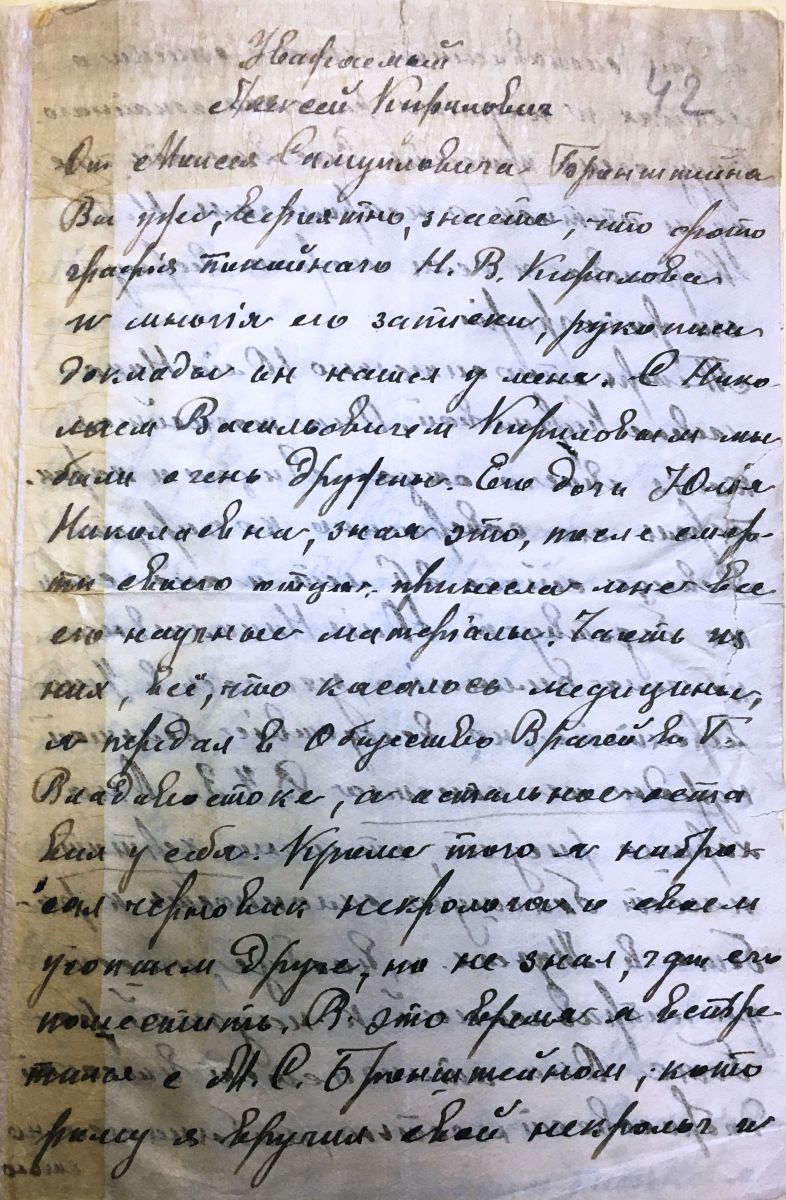 Уважаемый
Алексей Кирилович
42
От Моисея Самуиловича Бронштейна
Вы уже, вероятно, знаете, что фото
графія покойнаго Н. В. Кирилова
и многія его записки, рукописи
доклады он нашел у меня. С Нико
лаем Васильовичем Кириловым мы
были очень дружны. Его дочь Юлія
Николаевна, зная это, после смер-
ти своего отца, принесла мне все
его научные матеріалы. Часть из
них, всё, что касалось медицины,
я передал в Общество Врачей в Г.
Владивостоке, а остальное оста
вил у себя. Кроме того я набро-
сал черновик некролога о своем
усопшем друге, но не знал, где его
поместить. В это время я встре-
тился с М. С. Бронштейном, кото
рому я вручил свой некролог и